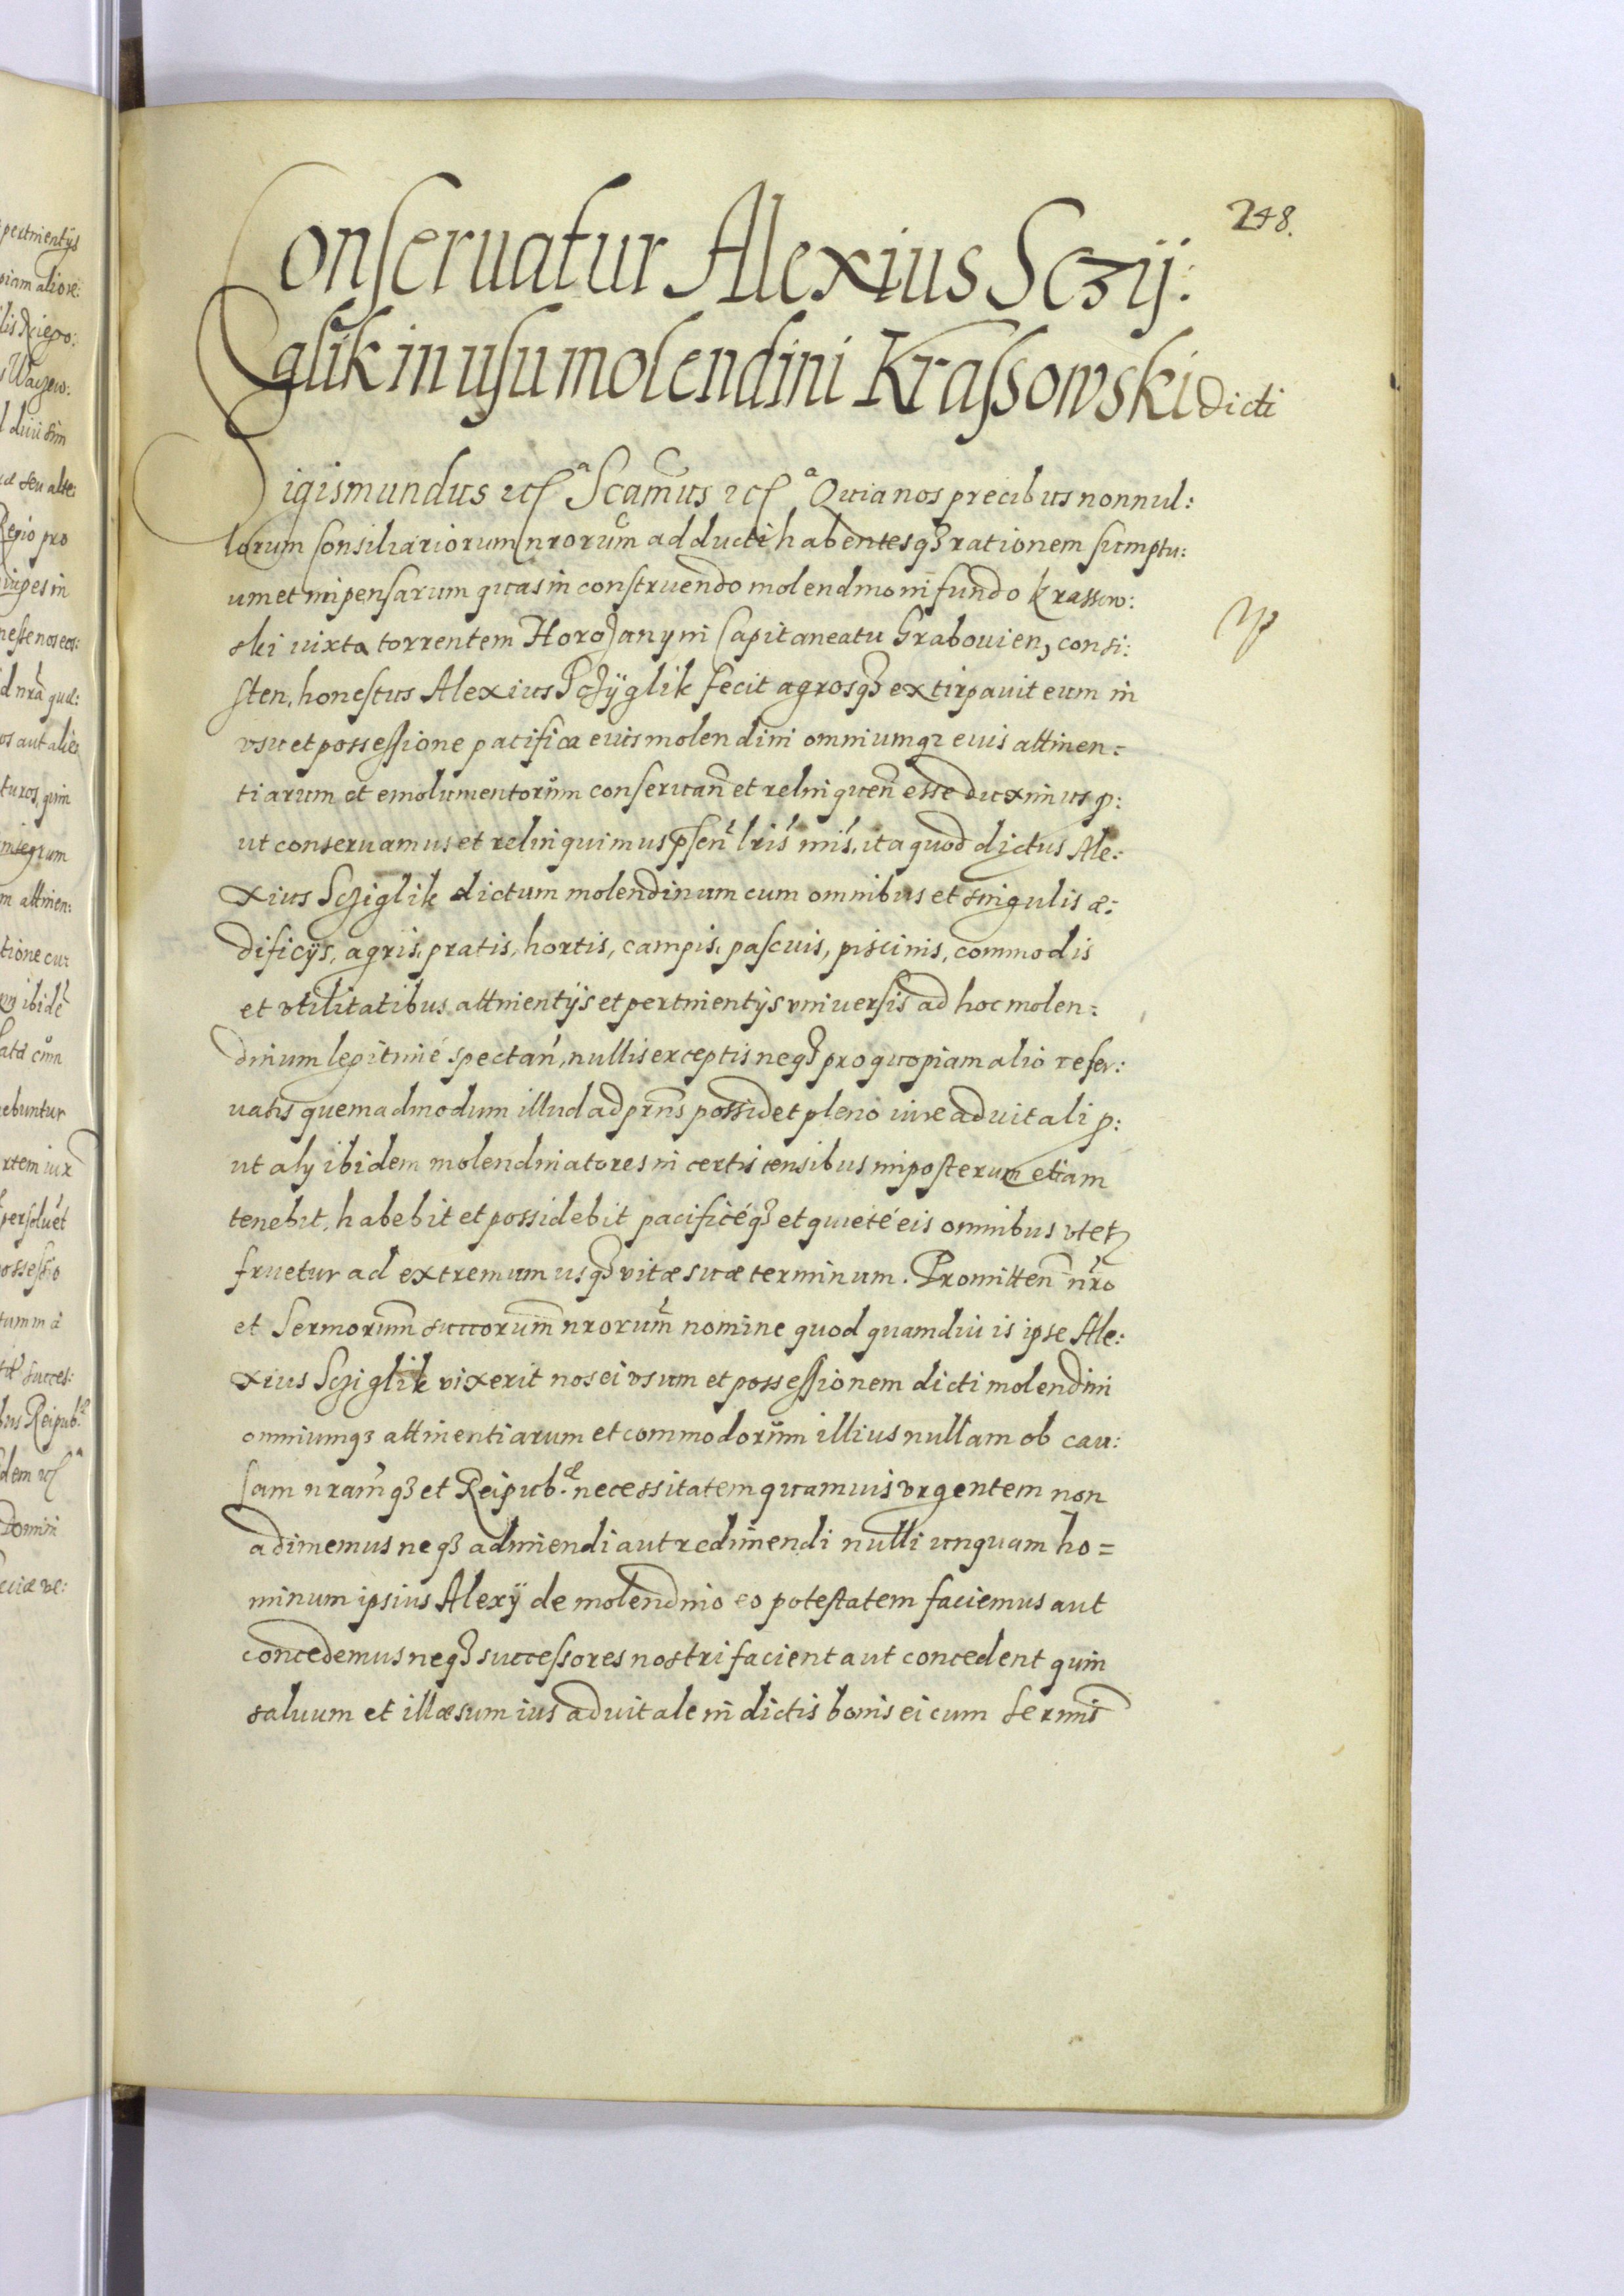 248.
Conseruatur Alexius Sczij:
glik in usu molendini Krassowski dicti
Sigismundus etc.ª Scam̃us etc.ª Quia nos precibus nonnul:
lorum Consiliariorum nrorum̃ adducti habentesq3 rationem sumptu:
um et impensarum quas in construendo molendino in fundo Krassow:
ski iuxta torrentem Horodzany in Capitaneatu Grabouien, consi:
sten, honestus Alexius Sczÿglik fecit agrosq3 extirpauit eum in
vsu et possessione pacifica euis molendini omniumq3 euis attinen=
tiarum et emolumentorum conseruan̄ et relinquen̄ esse duximus p:
ut conseruamus et relinquimus pñsen̄ lris nris, ita quod dictus Ale:
xius Scziglik dictum molendinum cum omnibus et singulis æ:
dificijs, agris, pratis, hortis, campis, pascuis, piscinis, commodis
et vtilitatibus attinentijs et pertinentijs vniuersis ad hoc molen:
dinum legitimé spectan̄, nullis exceptis neq3 pro quopiam alio reser:
uatis quemadmodum illud ad prñs possidet pleno iure aduitali p:
ut alij ibidem molendinatores in certis censibus imposterum etiam
tenebit, habebit et possidebit pacificéq3 et quieté eis omnibus vtet2
fruetur ad extremum usq3 vitæ suæ terminum. Promitten̄ nro
et Sermorum̃ succorum̃ nrorum̃ nomine quod quamdiu is ipse Ale:
xius Scziglik vixerit nos ei vsum et possessionem dicti molendini
omniumq3 attinentiarum et commodorum illius nullam ob cau:
sam nram̃q3 et Reipub.æ necessitatem quamuis vrgentem non
adimemus neq3 adimendi aut redimendi nulli unquam ho=
minum ipsius Alexij de molendino eo potestatem faciemus aut
concedemus neq3 successores nostri facient aut concedent quin
saluum et illæsum ius aduitale in dictis bonis ei cum Sermis̃